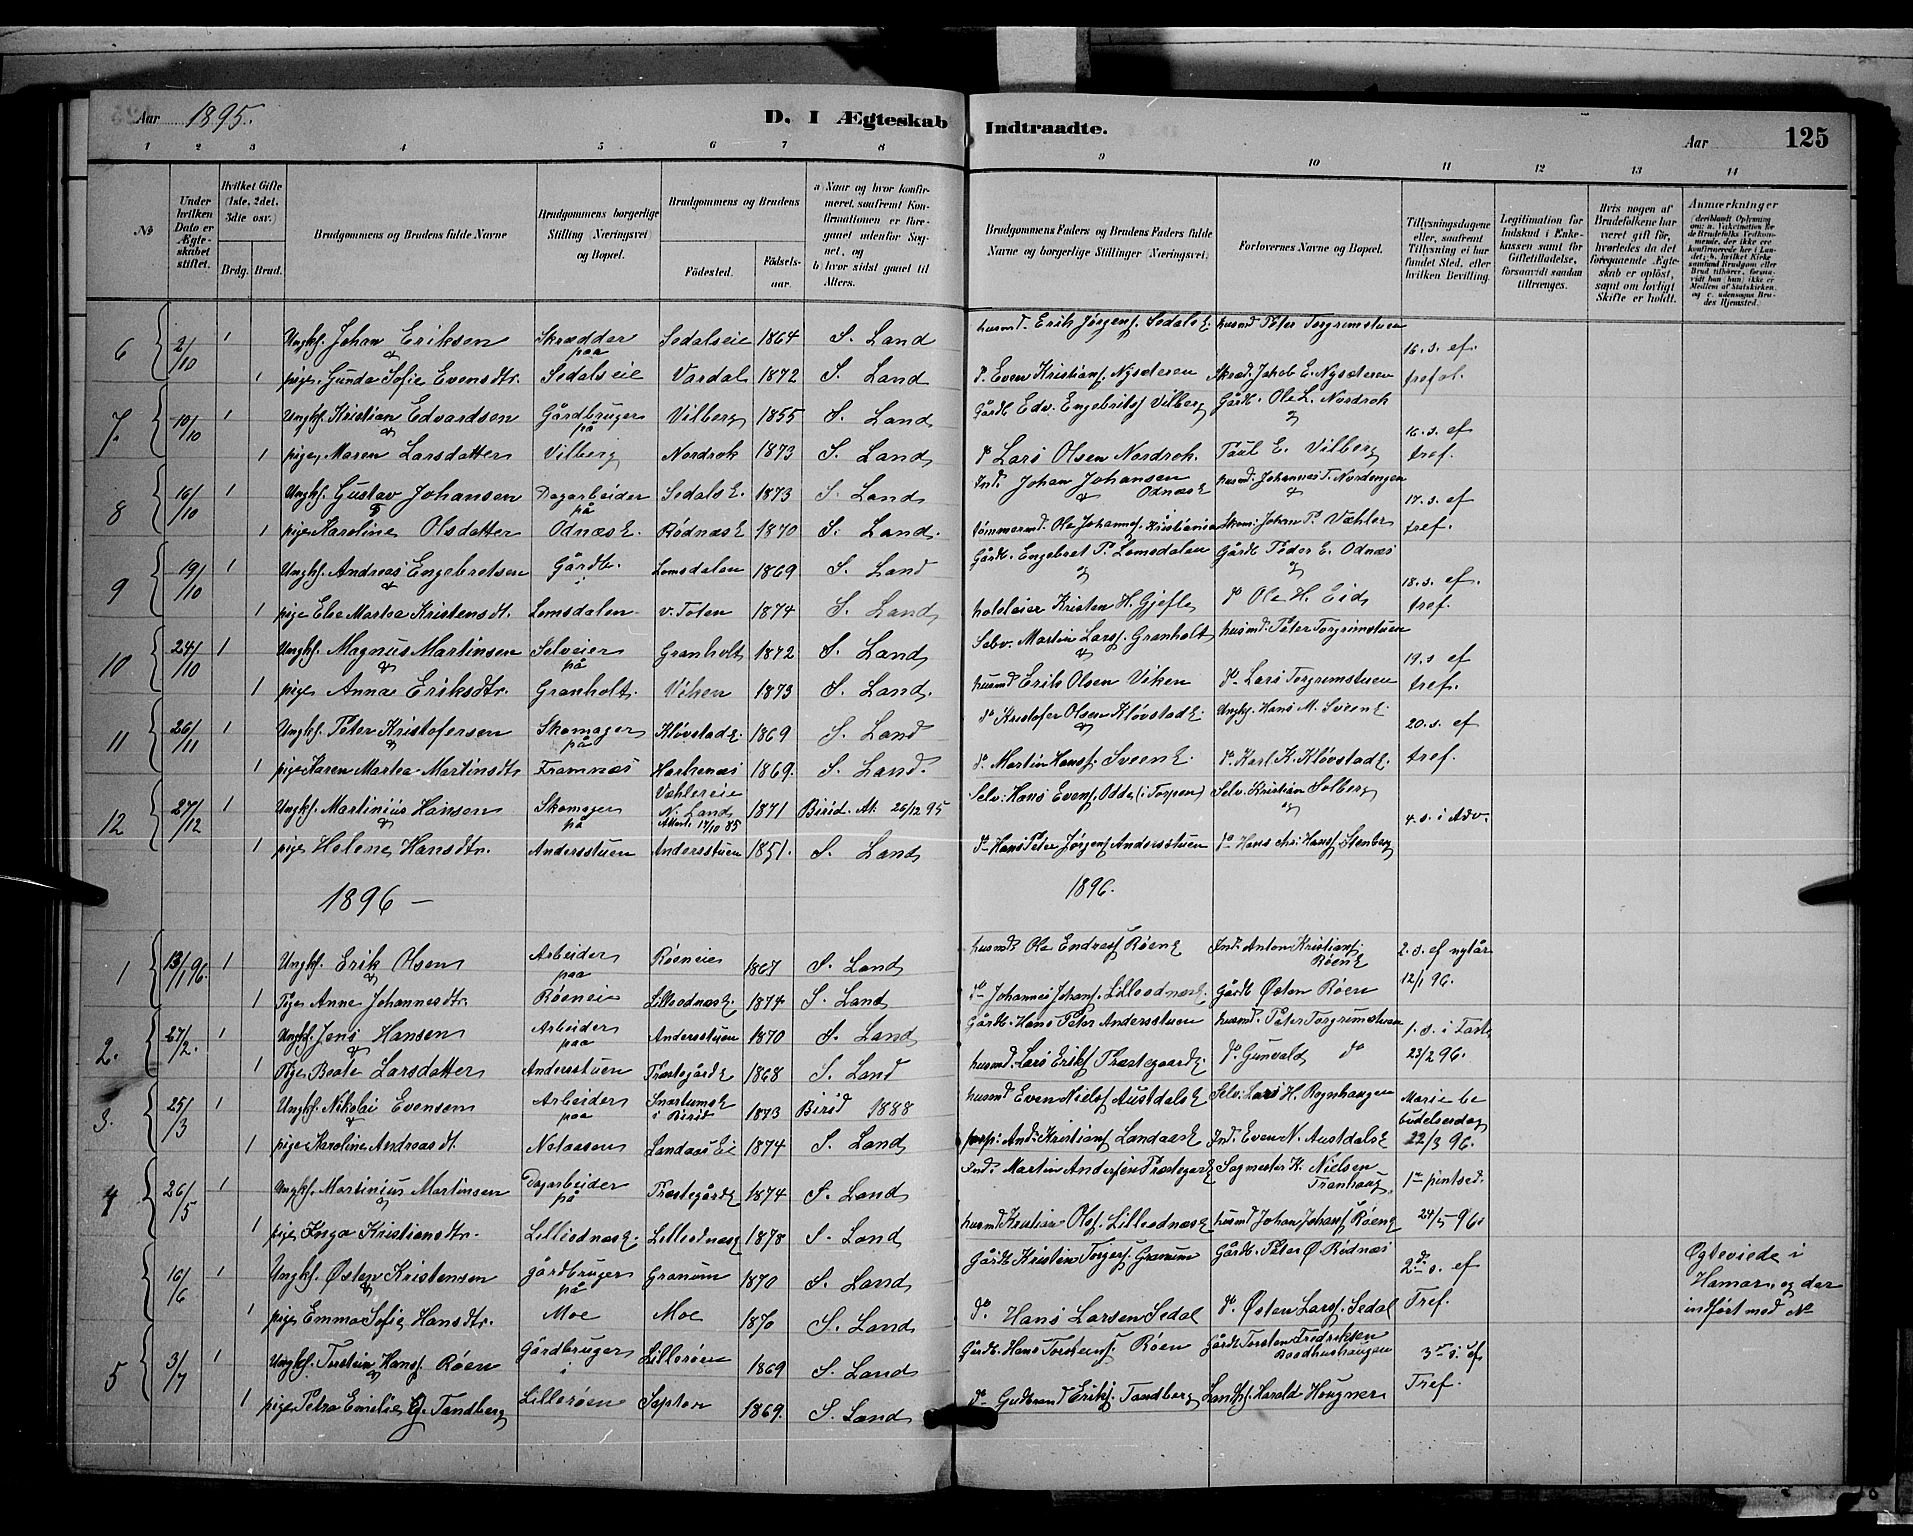 Aar 1895.
D. I Ægteskab Indtraadte.
Aar 125
1 2 3 4 5 6 7 8 9 10 11 12 13 14
No
Under hvilken Dato er Ægteskabet stiftet.
Hvilket Gifte (1ste, 2det, 3die osv.)
Brdg. Brud.
Brudgommens og Brudens fulde Navne
Brudgommens borgerlige Stilling (Næringsvei) og Bopæl.
Brudgommens og Brudens
Fødested. Fødselsaar.
a) Naar og hvor konfirmeret, saafremt Konfirmationen er foregaaet udenfor Sognet, og
b) hvor sidst gaaet til Alters.
Brudgommens Faders og Brudens Faders fulde Navne og borgerlige Stillinger (Næringsvei)
Forlovernes Navne og Bopæl.
Tillysningsdagene eller, saafremt Tillysning ei har fundet Sted, efter hvilken Bevilling.
Legitimation for Indskud i Enkekassen samt for Giftetilladelse, forsaavidt saadan tiltrænges.
Hvis nogen af Brudefolkene har været gift før, hvorledes da det foregaaende Ægteskab er opløst, samt om lovligt Skifte er holdt.
Anmærkninger
6 2/10 1 Ungkf. Johan Eriksen & Skrædder paa Sedalseie 1864 S. Land husmd. Erik Jørgens. Sedalse. husmd Peter Torgrimstuen 16. s. ef
1 pige Gunda Sofie Evensdtr. Sedalseie Vardal 1872 S. Land d. Even Kristians. Nysæteren Skræd. Jakob E. Nysæteren tref.
7. 10/10 1 Ungkf. Kristian Edvardsen & Gårdbruger på Vilberg 1855 S. Land Gårdb. Edv. Engebrits. Vilberg Gårdb. Ole L. Nordrok & 16. s. ef
1 pige Maren Larsdatter Vilberg Nordrok 1873 S. Land do Lars Olsen Nordrok. Paul E. Vilberg tref.
8 16/10 1 Ungkf. Gustav Johansen & Dagarbeider på Sedalse. 1873 S. Land Ind. Johan Johansen Odnæse & husmd. Johannes T. Nordengen & 17. s. ef
1 pige Karoline Olsdatter Odnæse. Rødnæse 1870 S. Land. tømmermd. Ole Johannes. Kristiania Skom. Johan P. Væhler tref.
9 19/10 1 Ungkf. Andreas Engebretsen & Gårdb. i Lomsdalen 1869 S. Land Gårdb. Engebret P. Lomsdalen & Gårdb. Peder E. Odnæs & 18. s. ef.
1 pige Else Martea Kristensdt. Lomsdalen v. Toten 1874 S. Land hoteleier Kristen H. Gjefle do Ole H. Eid tref.
10 24/10 1 Ungkf. Magnus Martinsen & Selveier på Granholt 1872 S. Land Selv. Martin Lars. Granholt & husmd. Peter Torgrimstuen 19. s ef
1 pige Anna Eriksdtr. Granholt. Viken 1873 S. Land. husmd Erik Olsen Viken do Lars Torgrimstuen tref.
11 26/11 1 Ungkf. Peter Kristofersen & Skomager på Kløvstade. 1869 S. Land do Kristofer Olsen Kløvstade & Ungkf. Hans M. Sveene 20. s. ef
1 pige Karen Martea Martinsdtr. Framnæs 1869. S. Land. do Martin Hans. Sveene. do Karl K. Kløvstade tref.
12 27/12 1 Ungkf. Martinius Hansen & Skomager på Væhlereie N. Land 1871 Birid. At. 26/12 95 Selv: Hans Evens. Odde (i Torpen) Selv. Kristian Solberg & 4. s. i Adv.
1 pige Helene Hansdtr. Andersstuen Andersstuen 1851. S. Land do Hans Peter Jørgens. Andersstuen do Hans Chr. Hans. Stenberg
1896 — 1896.
1 13/1 96. 1 Ungkf. Erik Olsen & Arbeider paa Røeneie 1867 S. Land husmd. Ole Endres. Røene Ind. Anton Kristians. Røene 2. s. ef nytår
1 Pige Anne Johannesdtr. Røeneie Lilleodnæse. 1874 S. Land do Johannes Johans. Lilleodnæse. Gårdb Østen Røen 12/1 96.
2. 27/2. 1 Ungkf. Jens Hansen & Arbeider paa Andersstuen 1870 S. Land Gårdb. Hans Peter Andersstuen husmd. Peter Torgrimstuen 1. s. i Faste
1 Pige Beate Larsdatter Andersstuen Præstegårde 1868 S. Land husmd. Lars Eriks. Præstegaarde. do Gunvald do 23/2 96.
3. 25/3 1 Ungkf. Nikolai Evensen & Arbeider paa Snartumse i Birid 1873 Birid 1888 husmd Even Niels. Austdalse Selv: Lars H. Røynhaugen Marie bebudelsesdag
1 pige Karoline Andreasdt. Landaas Ei 1874 S. Land And. Kristians. Landaase Ind. Even N. Austdalse 22/3 96.
4 26/5 1 Ungkf. Martinius Martinsen & Dagarbeider på Præstegårde 1874 S. Land Ind. Martin Andersen Præstegårde Sagmester K. Nielsen Tranhaug. 1ste pintsed.
1 pige Inga Kristiansdtr. Lilleodnæse. Lilleodnæse 1878 S. Land husmd Kristian Ols. Lilleodnæse husmd Johan Johans. Røene 24/5 96.
16/6 1 Ungkf. Østen Kristensen & gårdbruger på Granum 1870 S. Land Gårdb Kristen Torgers. Granum Gårdb. Peter Ø. Rødnæs 2den s. ef
1 pige Emma Sofie Hansdtr. Moe Moe 1870 S. Land do Hans Larsen Sedal do Østen Lars. Sedal Tref.
Ægteviede i Hamar, og der indført med No
5 3/7 1 Ungkf. Torstein Hans. Røen & Gårdbruger i Lillerøen 1869 S. Land Gårdb. Hans Torsteins. Røen Gårdb Torsten Fredriksen Raadhushaugen 3die s. ef
1 pige Petra Emilie G. Tandberg Lillerøen 1869. S. Land do Gudbrand Eriks. Tandberg Harald Hougner Tref.